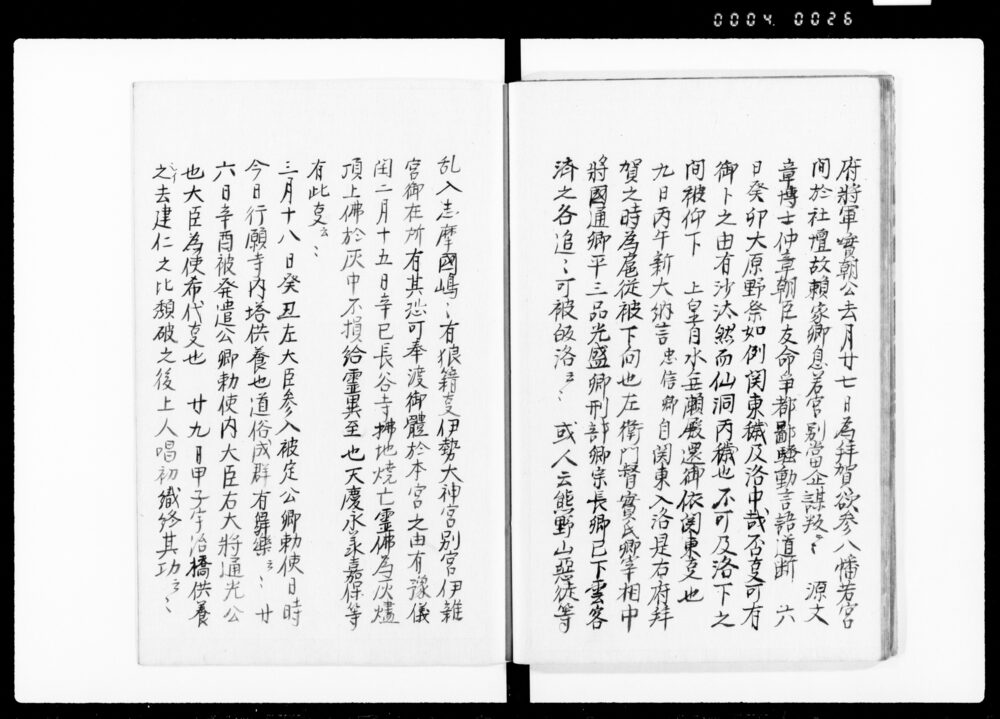 0004. 0026
府将軍實朝公去月廿七日為拜賀欲参八幡若宮
間於社壇故頼家卿息若宮別當企謀叛〻 源文
章博士仲章朝臣友命爭都鄙騒動言語道断 六
日癸卯大原野祭如例関東穢及洛中哉否㕝可有
御卜之由有沙汰然而仙洞丙穢也不可及洛下之
間被仰下 上皇自水無瀬殿還御依関東㕝也
九日丙午新大納言忠信卿自関東入洛是右府拜
賀之時為扈従被下向也左衛門督實氏卿宰相中
将國通卿平三品光盛卿刑部卿宗長卿已下雲客
済之各追〻可被皈洛云〻 或人云熊野山悪徒等
乱入志摩國嶋〻有狼籍㕝伊勢大神宮別宮伊雜
宮御在所有其恐可奉渡御體於本宮之由有豫儀
閏二月十五日辛巳長谷寺拂地焼亡霊佛為灰燼
頂上佛於灰中不損給霊異至也天慶永承嘉保等
有此㕝云〻
三月十八日癸丑左大臣参入被定公卿勅使日時
今日行願寺内塔供養也道俗成群有舞樂云〻 廿
六日辛酉被発遣公卿勅使内大臣右大将通光公
也大臣為使希代㕝也 廿九日甲子宇治橋供養
云〻去建仁之比頽破之後上人唱初織終其功云〻